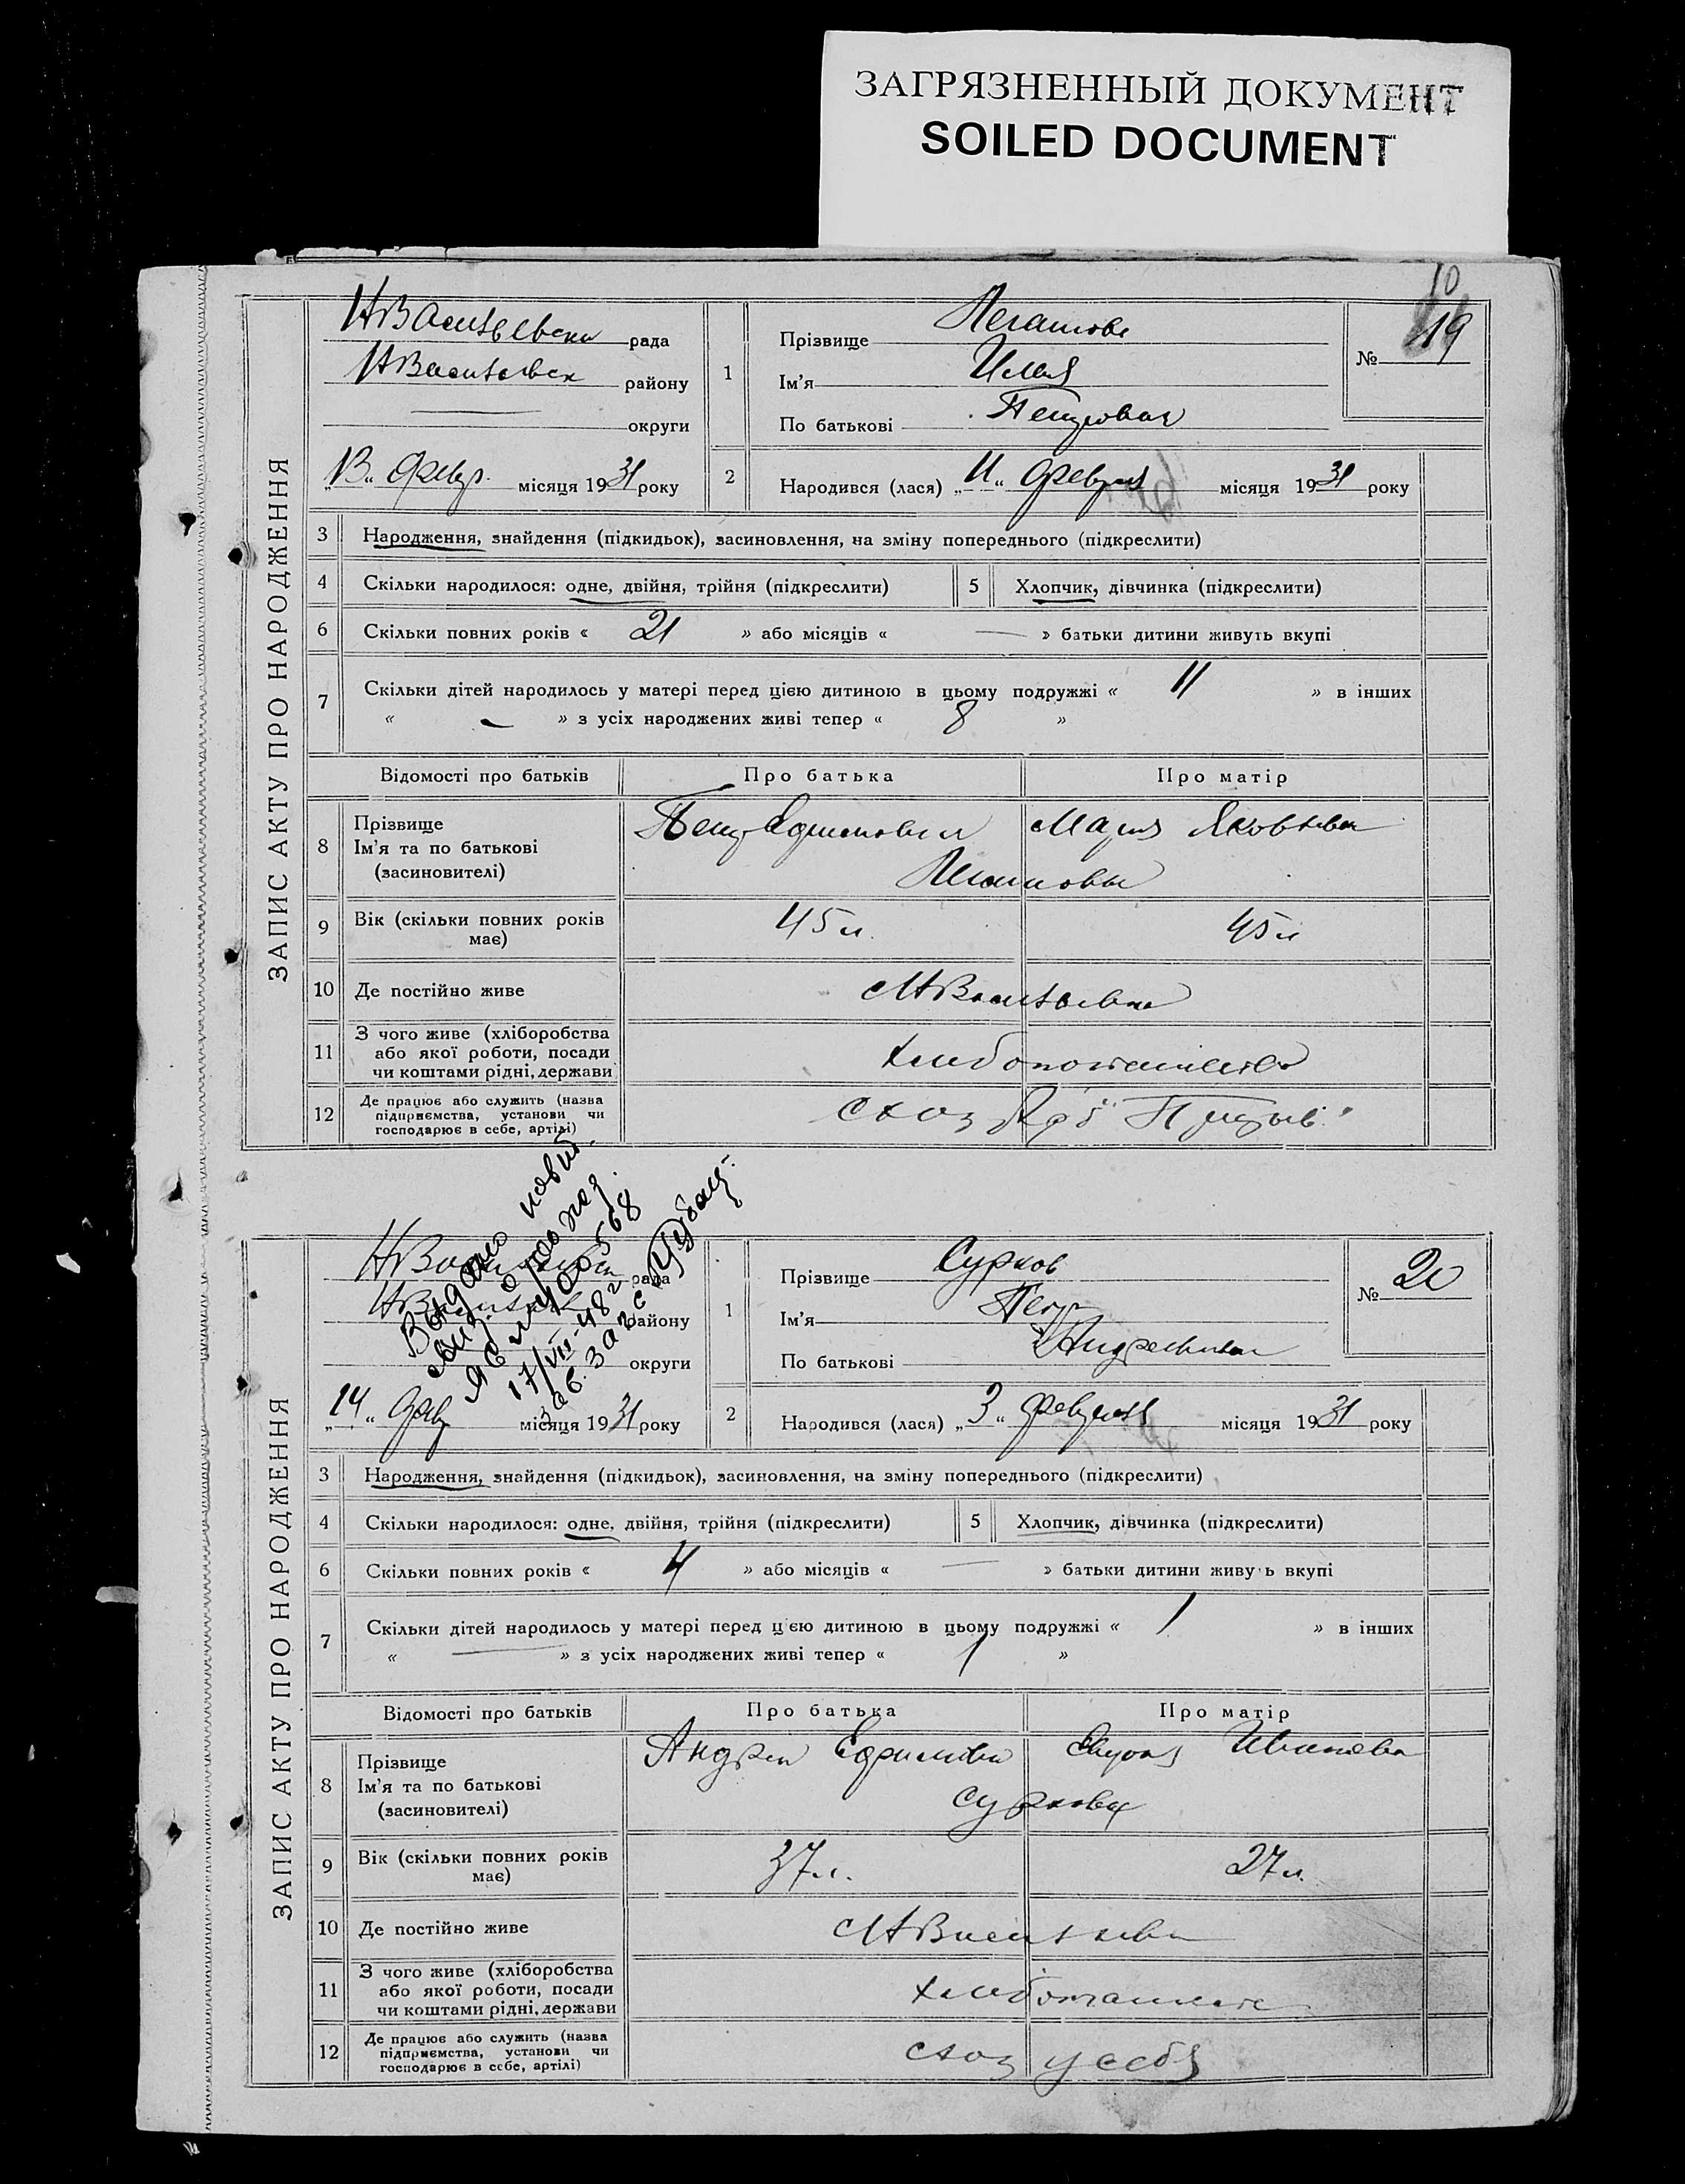 ЗАГРЯЗНЕННЫЙ ДОКУМЕНТ
SOILED DOCUMENT
10
ЗАПИС АКТУ ПРО НАРОДЖЕННЯ
рада
району
округи
„13“ февр. місяця 1931 року
1
Прізвище
Ім'я Илья
По батькові Петрович
№ 19
2 Народився (лася) „11“ февраля місяця 1931 року
3 Народження, знайдення (підкидьок), засиновлення, на зміну попереднього (підкреслити)
4 Скільки народилося: одне, двійня, трійня (підкреслити) 5 Хлопчик, дівчинка (підкреслити)
6 Скільки повних років « 21 » або місяців « — » батьки дитини живуть вкупі
7 Скільки дітей народилось у матері перед цією дитиною в цьому подружжі « 11 » в інших
« — » з усіх народжених живі тепер « 8 »
Відомості про батьків Про батька Про матір
8 Прізвище
Ім'я та по батькові
(засиновителі)
Петр Ефимович Мария Яковлевна
9 Вік (скільки повних років
має)
45 л. 45 л
10 Де постійно живе
11 З чого живе (хліборобства
або якої роботи, посади
чи коштами рідні, держави
12 Де працює або служить (назва
підприємства, установи чи
господарює в себе, артілі)
Выдано новий
17/VII-48 г
Зав. загс
ЗАПИС АКТУ ПРО НАРОДЖЕННЯ
рада
району
округи
„14“ фев місяця 1931 року
1
Прізвище Сурков
Ім'я Петр
По батькові Андреевич
№ 20
2 Народився (лася) „3“ февраля місяця 1931 року
3 Народження, знайдення (підкидьок), засиновлення, на зміну попереднього (підкреслити)
4 Скільки народилося: одне, двійня, трійня (підкреслити) 5 Хлопчик, дівчинка (підкреслити)
6 Скільки повних років « 4 » або місяців « — » батьки дитини живуть вкупі
7 Скільки дітей народилось у матері перед цією дитиною в цьому подружжі « 1 » в інших
« — » з усіх народжених живі тепер « 1 »
Відомості про батьків Про батька Про матір
8 Прізвище
Ім'я та по батькові
(засиновителі)
Андрей Ефимович Ивановна
Сурковы
9 Вік (скільки повних років
має)
37 л. 27 л.
10 Де постійно живе
11 З чого живе (хліборобства
або якої роботи, посади
чи коштами рідні, держави
12 Де працює або служить (назва
підприємства, установи чи
господарює в себе, артілі)
схоз у себя